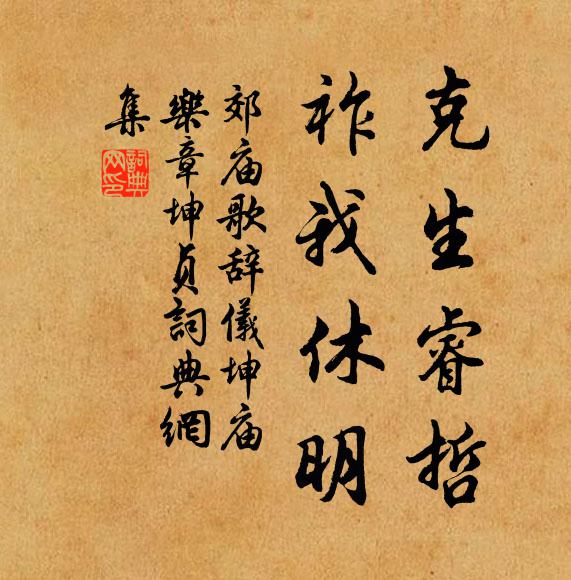 克生睿哲
祚我休明
郊庙歌辞儀坤庙
樂章坤贞詞典網
集
詞典网印